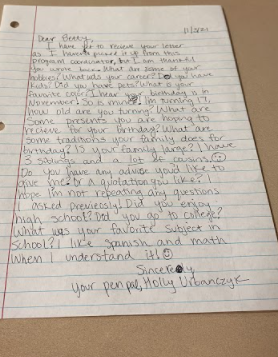 Dear Betty,
I have yet to recieve your letter
as I haven't picked it up from this
program coordinator, but I am thankful
you wrote back. What are some of your
hobbies? What was your career? Do you have
kids? Did you have pets? What is your
favorite color? I hear your birthday is in
November! So is mine. I'm turning 17,
how old are you turning? What are
some presents you are hoping to
recieve for your birthday? What are
some traditions your family does for
birthday? Is your family large? I have
3 siblings and a lot of cousins.
Do you have any advise you'd like to
give me? Or a quotation you like? I
hope I'm not repeating any questions
I asked previously! Did you enjoy
high school? Did you go to college?
What was your favorite subject in
school? I like Spanish and math
when I understand it!
Sincerely
your pen pal, Holly Urbanczyk